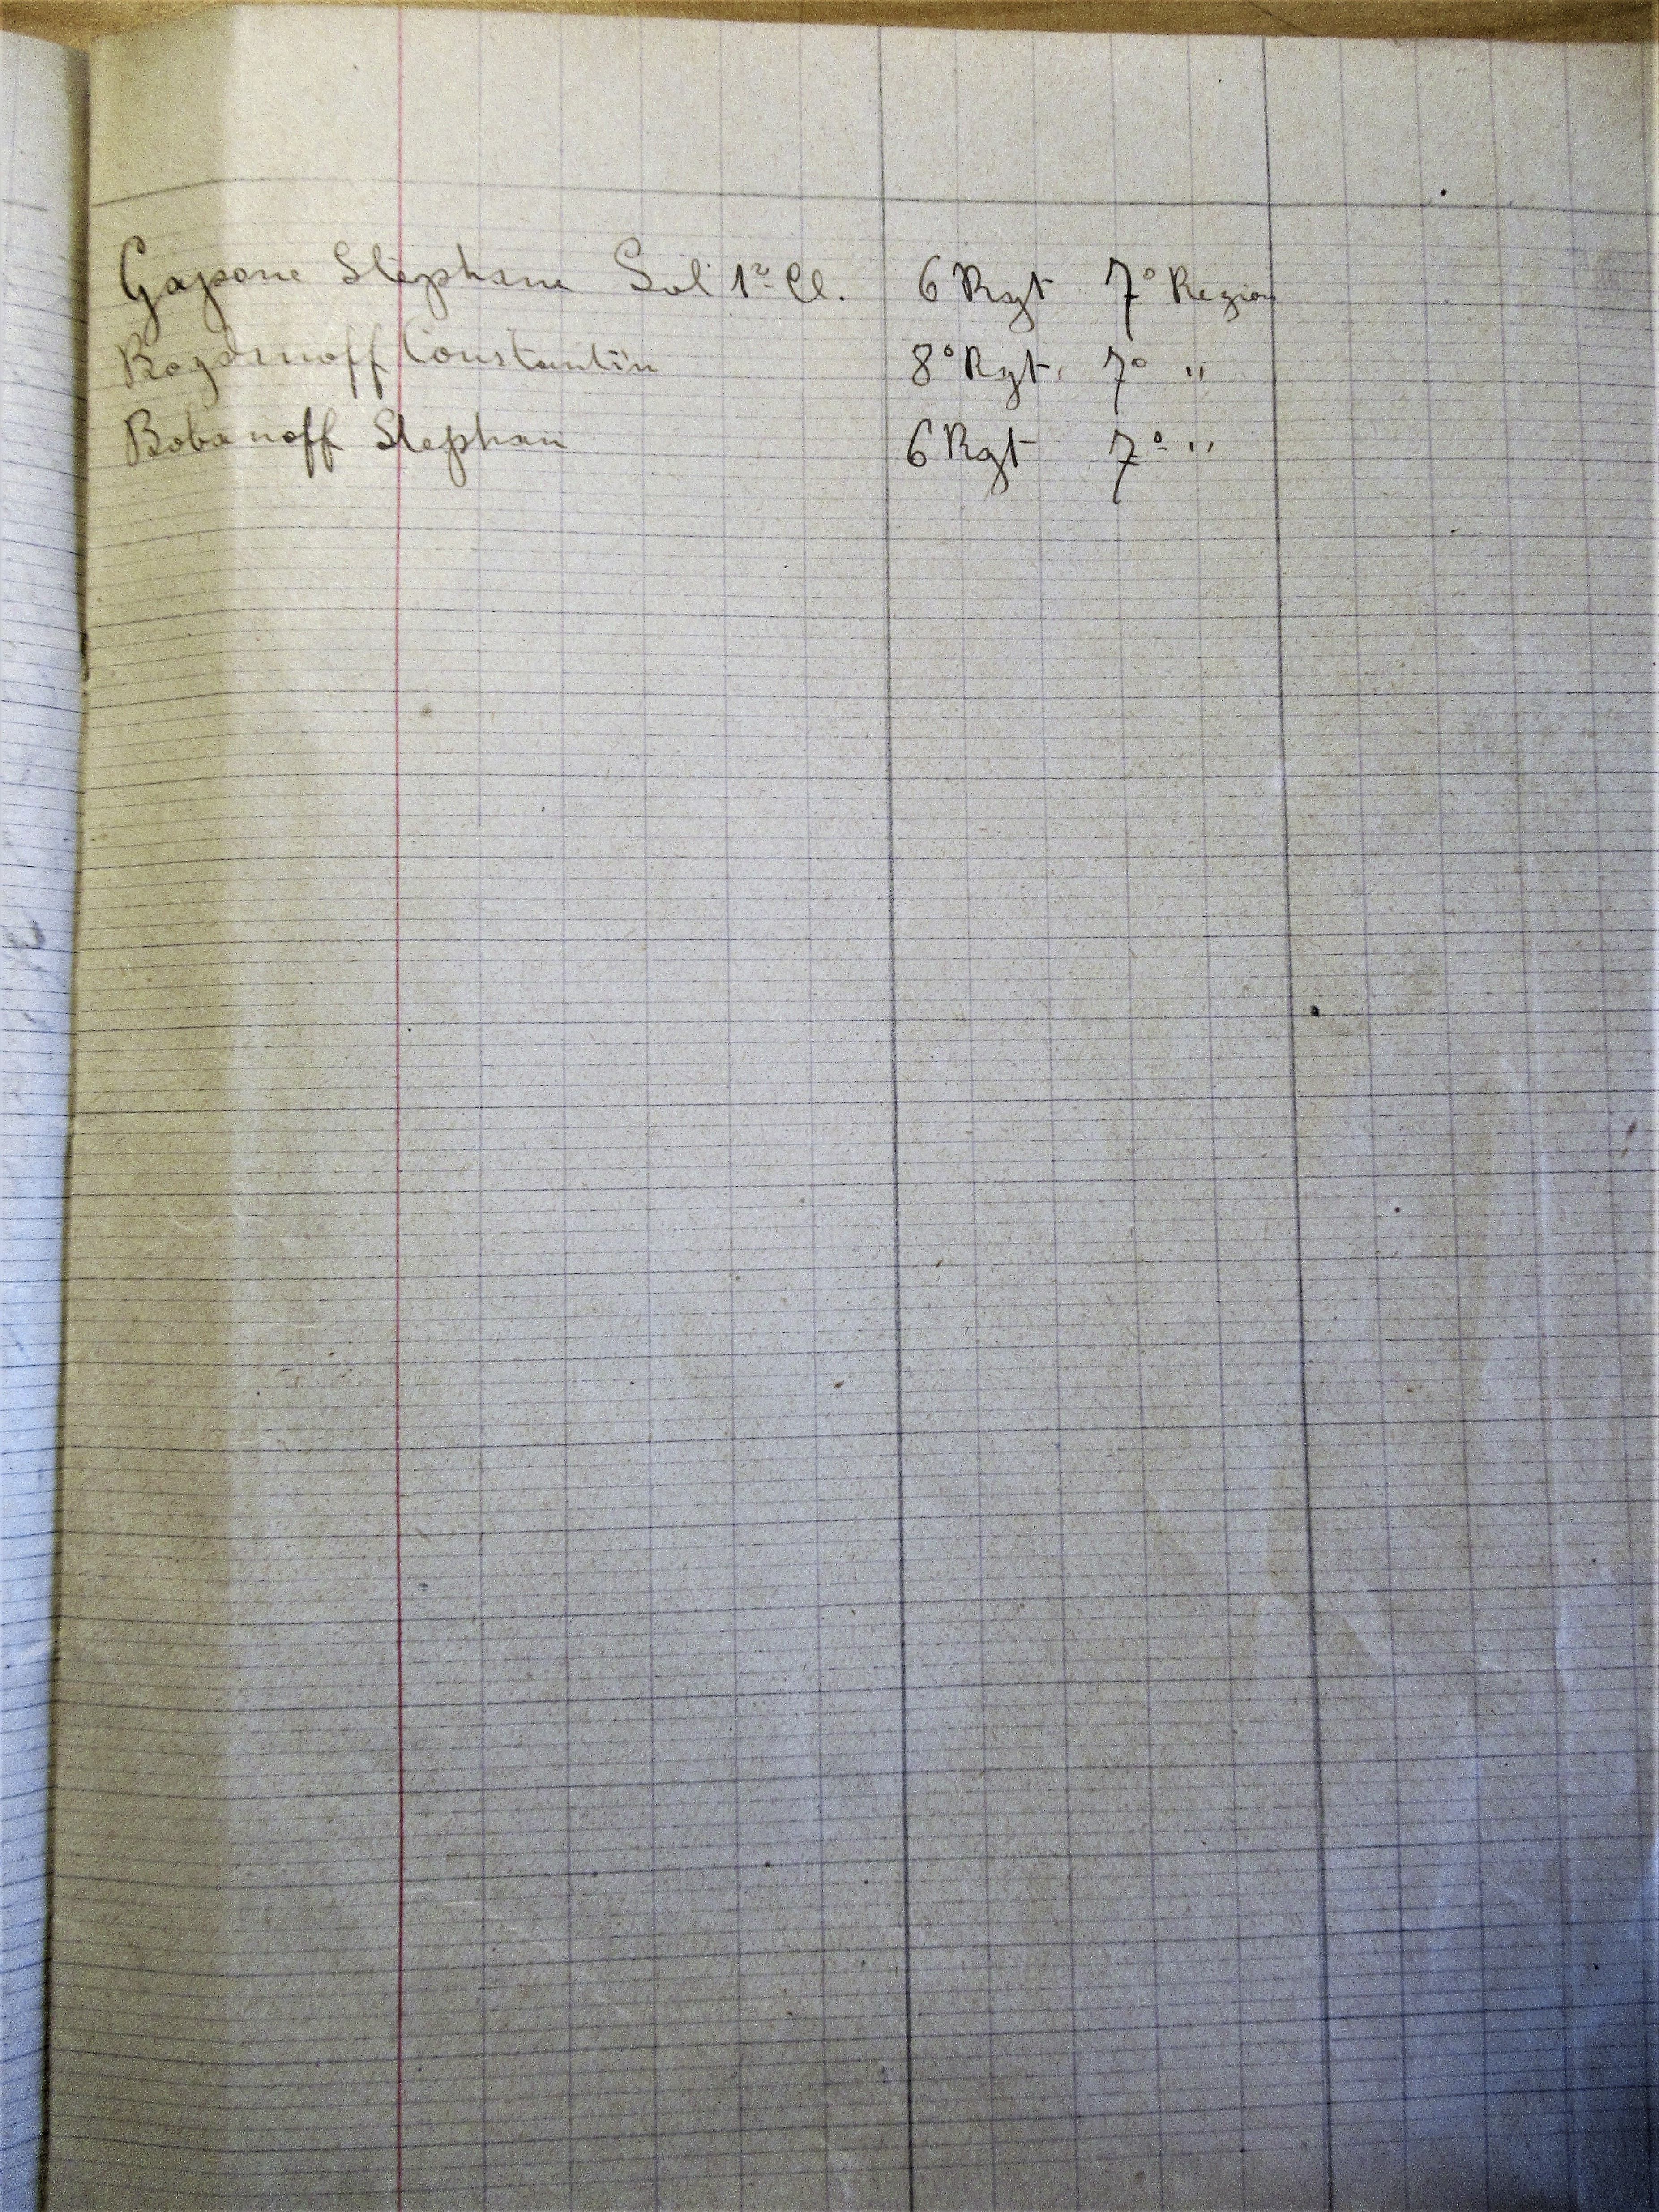 Gapone Stephane Sol 1e Cl. 6 Rgt 7° Region
Bogdanoff Constantin 8° Rgt. 7° "
Bobanoff Stephan 6 Rgt 7° "